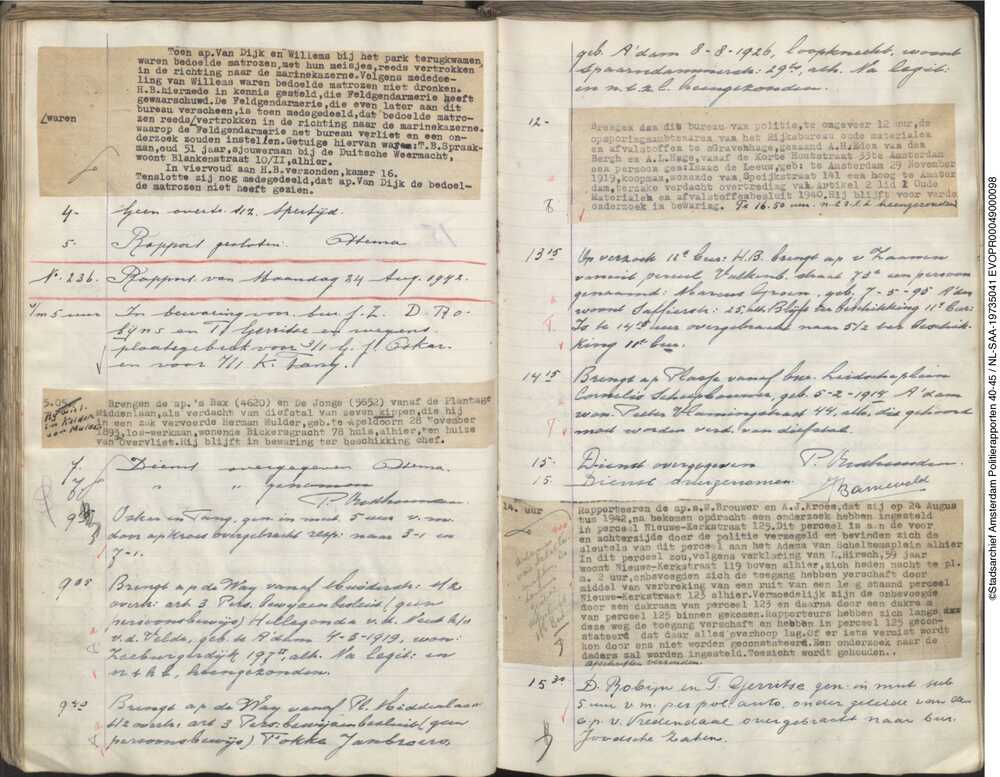 Toen ap.Van Dijk en Willems bij het park terugkwamen,
waren bedoelde matrozen,met hun meisjes,reeds vertrokken
in de richting naar de marinekazerne.Volgens mededee-
ling van Willems waren bedoelde matrozen niet dronken.
H.B.hiermede in kennis gesteld,die Feldgendarmerie heeft
gewaarschuwd.De Feldgendarmerie,die even later aan dit
bureau verscheen,is toen medegedeeld,dat bedoelde matro-
/waren zen reeds/vertrokken in de richting naar de marinekazerne.
waarop de Feldgendarmerie het bureau verliet en een on-
derzoek zouden instellen.Getuige hiervan waren:T.B.Spraak-
man,oud 51 jaar,sjouwerman bij de Duitsche Weermacht,
woont Blankenstraat 10/II,alhier.
In viervoud aan H.B.verzonden,kamer 16.
Tenslotte zij nog medegedeeld,dat ap.Van Dijk de bedoel-
de matrozen niet heeft gezien.
4- Geen overtr. t.z. Spertijd.
5. Rapport gesloten. Ottema
No. 236. Rapport van Maandag 24 Aug. 1942.
v/m 5 uur In bewaring voor bur. J.Z. D. Ro-
bijns en T. Gerritse en wegens
plaatsgebrek voor 3/1 G. J. Osker
en voor 7/1 K. Tang.
5.05. Brengen de ap.'s Bax (4620) en De Jonge (5652) vanaf de Plantage
Middenlaan,als verdacht van diefstal van zeven kippen,die hij
in een zak vervoerde Herman Mulder,geb.te Apeldoorn 28 November
1893,los-werkman,wonende Bickersgracht 78 huis,alhier,ten huize
van Overvliet.Hij blijft in bewaring ter beschikking chef.
7. Dienst overgegeven Ottema.
7 " " genomen
P. Roodhuizen
Osker en Tang. gen. in mut. 5 uur v.m.
door ap Kroes overgebracht resp. naar 3-1 en
7-1.
9 05 Brengt ap de Waij vanaf Muiderstr. t/z
overtr. art 3 Pers. bewijzenbesluit (geen
persoonsbewijs) Hillegonda v.h. Neut h/v
v.d. Velde, geb. te A'dam 4-5-1919, won:
Zeeburgerdijk 197 II, alh. Na legit: en
v t k b, heengezonden.
9 40 Brengt ap de Waij vanaf Pl. Middenlaan
t/z overtr. art 3 Pers. bewijzenbesluit (geen
persoonsbewijs) Fokke Janbroers,
geb. A'dam 8-8-1926, loopknecht, woont
Spaarndammerstr. 29 hs, alh. Na legit:
en n.t.z.b. heengezonden.
12- Brengen aan dit bureau van politie,te ongeveer 12 uur,de
opsporingsambtenaren van het Rijksbureau oude materialen
en afvalstoffen te sGravenhage,genaamd A.H.Eden van den
Bergh en A.L.Hage,vanaf de Korte Houtstraat 33te Amsterdam
een persoon gen:Isaac de Leeuw,geb: te Amsterdam 29 November
1919,koopman,wonende van Speijkstraat 141 een hoog te Amster
dam,terzake verdacht overtreding van Artikel 2 lid 1 Oude
Materialen en afvalstoffenbesluit 1940.Hij blijft voor verder
onderzoek in bewaring. Te 16.50 uur n.t.z.b. heengezonden
13 15 Op verzoek 11e bur: H.B. brengt ap v Zaanen
vanuit perceel Valkenb. straat 75a een persoon
genaamd: Marcus Groen, geb. 7-5-95 A'dam
woont Saffierstr: 25, alh. Blijft ter beschikking 11e bur:
Is te 14 15 uur overgebracht naar 5 1/2 ter beschik-
king 11e bur.
14 15 Brengt ap Plasse vanaf bur. Leidscheplein
Cornelis Scheybouwer, geb. 5-2-1914 A'dam
won. Pieter Vlamingstraat 44, alh. die gehoord
moet worden verd. van diefstal.
15- Dienst overgegeven P. Roodhuizen.
15 Dienst overgenomen. Barneveld
14. uur Rapporteeren de ap.s.W.Brouwer en A.J.Kroes,dat zij op 24 Augus
tus 1942,na bekomen opdracht een onderzoek hebben ingesteld
in perceel Nieuwe-Kerkstraat 125.Dit perceel is aan de voor
en achterzijde door de politie verzegeld en bevinden zich de
sleutels van dit perceel aan het Adama van Scheltemaplein alhier
In dit perceel zou,volgens verklaring van L.Hirsch,59 jaar
woont Nieuwe-Kerkstraat 119 boven alhier,zich heden nacht te pl.
m. 2 uur,onbevoegden zich de toegang hebben verschaft door
middel van verbreking van een ruit van een leeg staand perceel
Nieuwe-Kerkstraat 123 alhier.Vermoedelijk zijn de onbevoegde
door een dakraam van perceel 123 en daarna door een dakraam
van perceel 125 binnen gekomen.Rapporteurs hebben zich langs
deze weg de toegang verschaft en hebben in perceel 125 gecon-
stateerd dat daar alles overhoop lag.Of er iets vermist wordt
kon door ons niet worden geconstateerd.Een onderzoek naar de
daders zal worden ingesteld.Toezicht wordt gehouden..
Afschriften verzonden.
15 30 D. Robijn en T. Gerritse gen. in mut. seb.
5 uur v.m. per pol. auto, onder geleide van den
a.p. v. Vredendaal overgebracht naar bur.
Joodsche Zaken.
©Stadsarchief Amsterdam Politierapporten 40-45 / NL-SAA-19735041 EVOPR00049000098